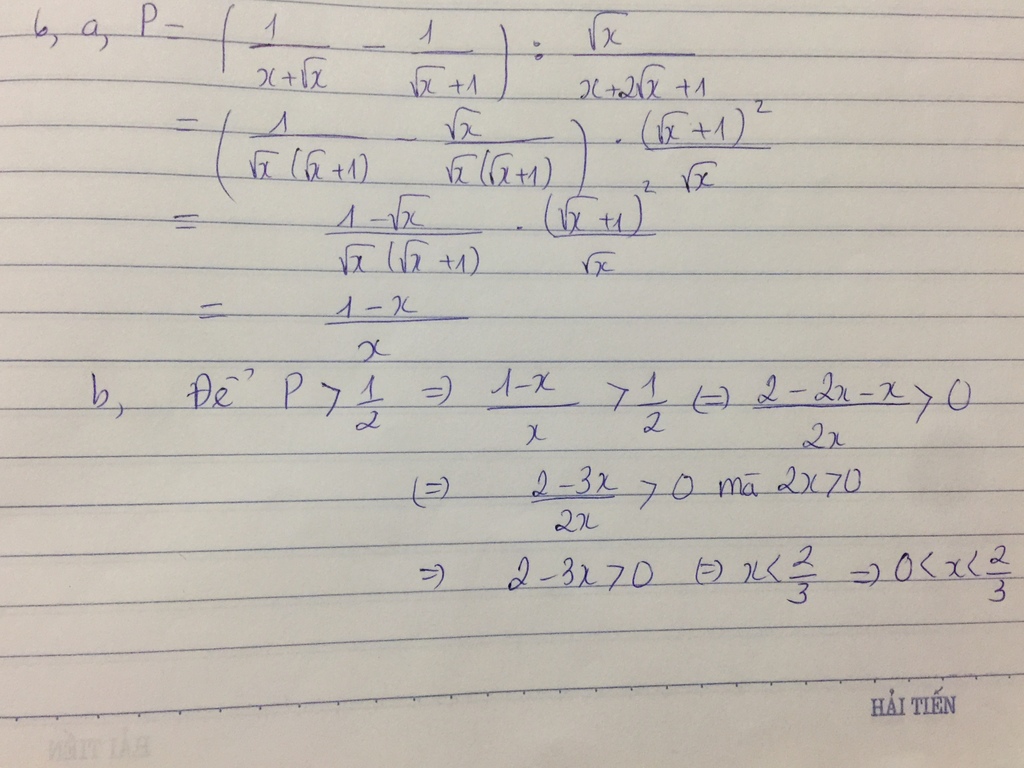 6, a, P = (1/(x+√x) − 1/(√x+1)) : √x/(x+2√x+1)
= (1/(√x(√x+1)) − √x/(√x(√x+1))) . (√x+1)²/√x
= (1−√x)/(√x(√x+1)) . (√x+1)²/√x
= (1−x)/x
b, Để P > 1/2 => (1−x)/x > 1/2 (=) (2−2x−x)/2x > 0
(=) (2−3x)/2x > 0 mà 2x>0
=> 2−3x>0 (=) x< 2/3 => 0<x<2/3
HẢI TIẾN
HẢI TIẾN